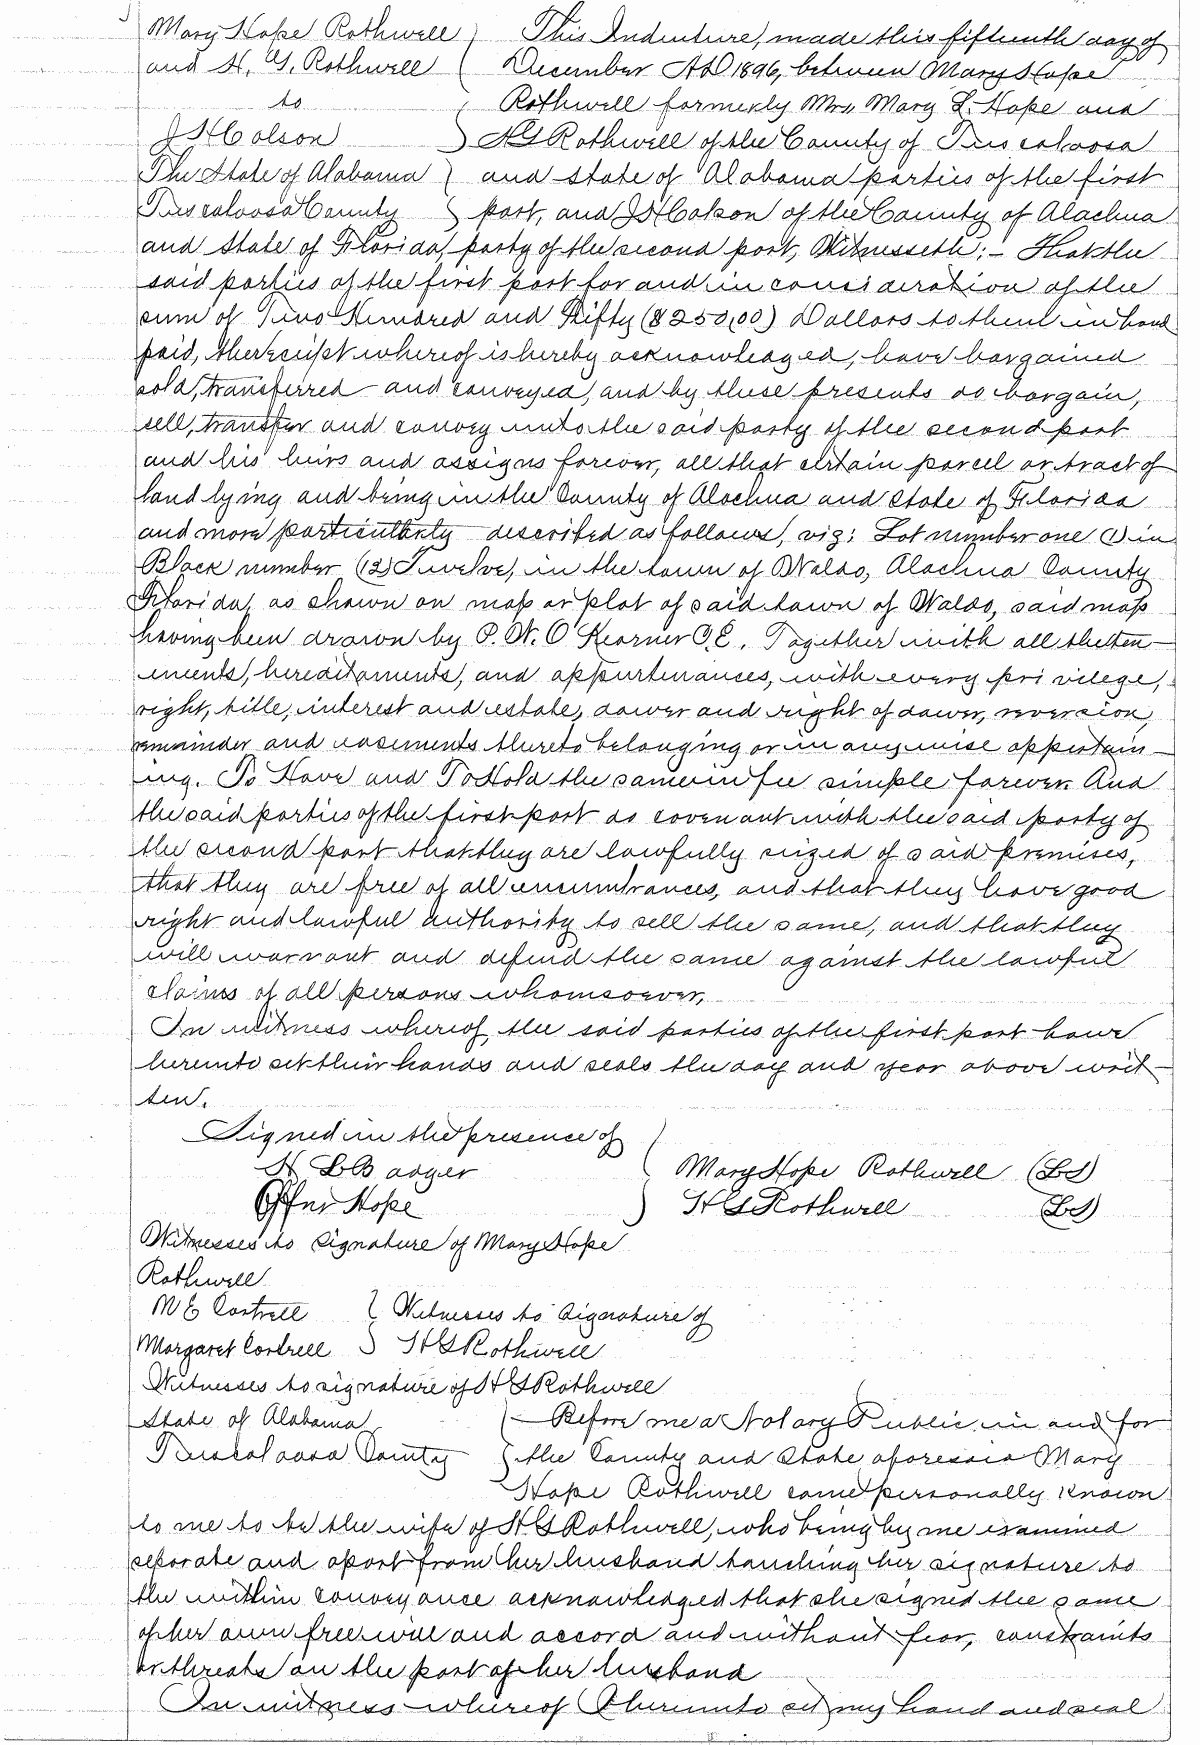 Mary Hope Rothwell ) This Indenture, made this fifteenth day of
and H. G. Rothwell ( December AD 1896, between Mary Hope
to ( Rothwell formerly Mrs. Mary L. Hope and
J H Colson ) H G Rothwell of the County of Tuscaloosa
The State of Alabama ) and State of Alabama parties of the first
Tuscaloosa County ) part, and J H Colson of the County of Alachua
and State of Florida, party of the second part, Witnesseth; - That the
said parties of the first part for and in consideration of the
sum of Two Hundred and Fifty ($250,00) Dollars to them in hand
paid, the receipt whereof is hereby acknowledged, have bargained
sold, transferred and conveyed, and by these presents do bargain,
sell, transfer and convey unto the said party of the second part
and his heirs and assigns forever, all that certain parcel or tract of
land lying and being in the County of Alachua and State of Florida
and more particularly described as follows, viz: Lot number one (1) in
Block number (12) Twelve, in the town of Waldo, Alachua County
Florida, as shown on map or plot of said town of Waldo, said map
having been drawn by P. W. O'Kearner C.E. Together with all the ten-
ements, hereditaments, and appurtenances, with every privilege,
right, title, interest and estate, dower and right of dower, reversion,
remainder and easements thereto belonging or in anywise appertain-
ing. To Have and To Hold the same in fee simple forever. And
the said parties of the first part do covenant with the said party of
the second part that they are lawfully seized of said premises,
that they are free of all incumbrances, and that they have good
right and lawful authority to sell the same, and that they
will warrant and defend the same against the lawful
claims of all persons whomsoever,
In witness whereof, the said parties of the first part have
hereunto set their hands and seals the day and year above writ-
ten.
Signed in the presence of (
H L Badger ( Mary Hope Rothwell (LS)
Hope ) H G Rothwell (LS)
Witnesses to signature of Mary Hope
Rothwell
M E Cottrell ) Witnesses to signature of
Margaret Cottrell ) H G Rothwell
Witnesses to signature of H G Rothwell
State of Alabama ) Before me a Notary Public in and for
Tuscaloosa County ) the County and State aforesaid Mary
Hope Rothwell came personally known
to me to be the wife of H G Rothwell, who being by me examined
separate and apart from her husband touching her signature to
the within conveyance acknowledged that she signed the same
of her own free will and accord and without fear, constraints
or threats on the part of her husband
In witness whereof I hereunto set my hand and seal